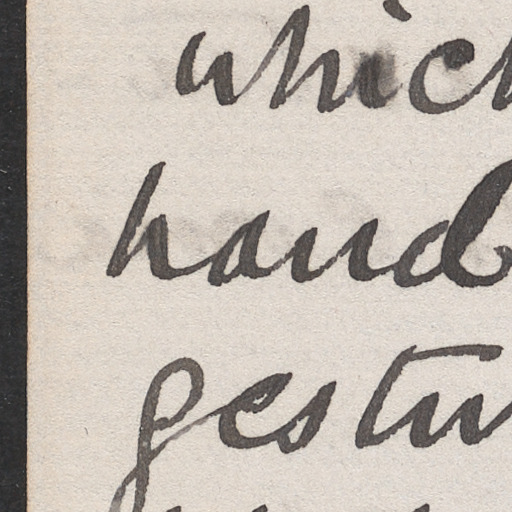 which
hand
gestu